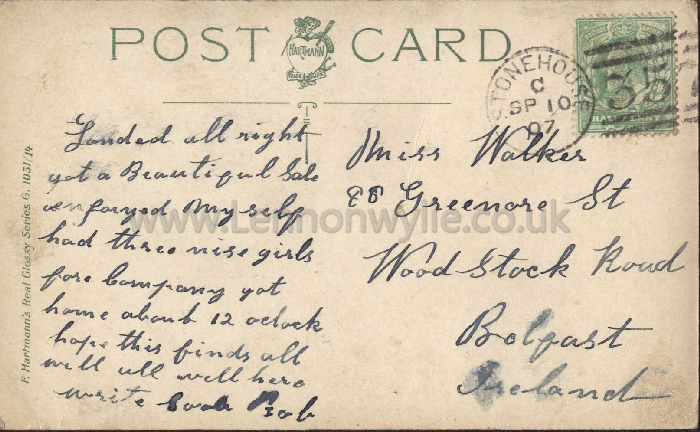 POST CARD
HARTMANN
STONEHOUSE
C
SP 10
07
Landed all right
got a Beautiful Sale
enjoryed My self
had three nise girls
fore Company got
home about 12 oclock
hope this finds all
well all well here
write soon Bob
Miss Walker
Greenore St
Wood Stock Road
Belfast
Ireland
F. Hartmann's Real Glossy Series G. 1051/14
www.Lennonwylie.co.uk